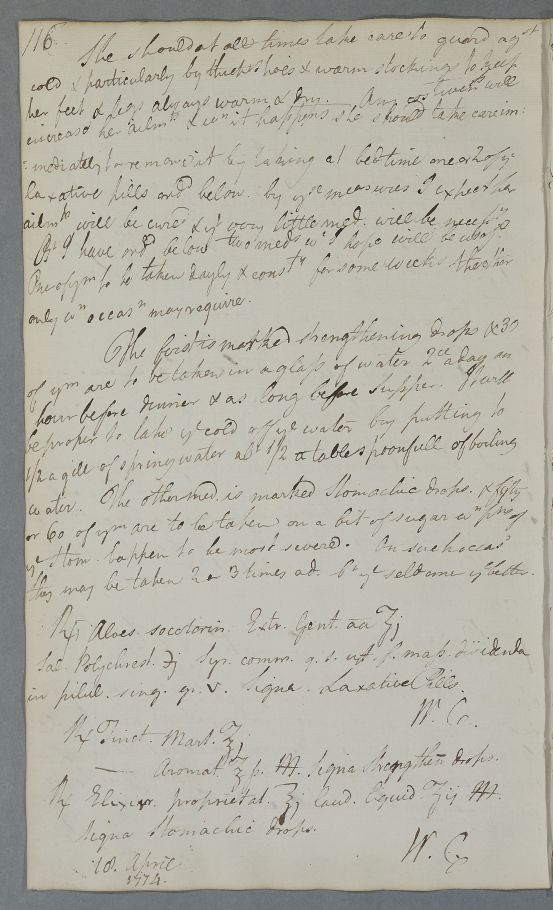 116.
She should at all times take care to guard agst
cold & particularly by thick shoes & warm stockings to keep
her feet & legs always warm & dry. Any costiveness will
increase her ailmts & wn it happens she should take care im:
:mediately to remove it by taking at bedtime one or 2 of ye
laxative pills ord below. by yse measures I expect her
ailmts will be cured & yt very little med. will be necessy
Bt I have ord below two meds wch I hope will be useful
One of ym to be taken dayly & constly for some weeks the other
only wn occasn may require.
The first is marked strengthening drops & 30
of ym are to be taken in a glass of water 2ce a day an
hour before dinner & as long before supper. It will
be proper to take ye cold off ye water by putting to
1/2 a gill of spring water abt 1/2 a tablespoonfull of boiling
water. The other med. is marked Stomachic drops. & fifty
or 60 of ym are to be taken on a bit of sugar wn pns of
ye stom. happen to be most severe. On such occas
they may be taken 2 or 3 times a d. bt ye seldomer ye better.
Rx Aloes. socotorin. Extr. Gent. aa ʒj
Sal. Polychrest. ʒj Syr. comm. q. s. ut f. mass. dividenda
in pilul. sing. gr. v. Signa. Laxative Pills.
W. C.
Rx Tinct. Mart. ℥j
— Aromat. ℥ss. M. Signa Strengthen drops.
Rx Elixir. proprietat. ℥j laud. liquid. ʒij M.
Signa Stomachic drops.
W. C.
18. April
1774.